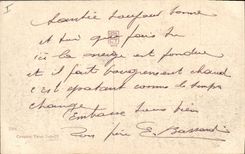 I
Santé toujours bonne
et toi que fais tu
ici la neige est fondue
et il fait bougrement chaud
c'est épatant comme le temps
change
Embrasse tiens bien
Ton père E.